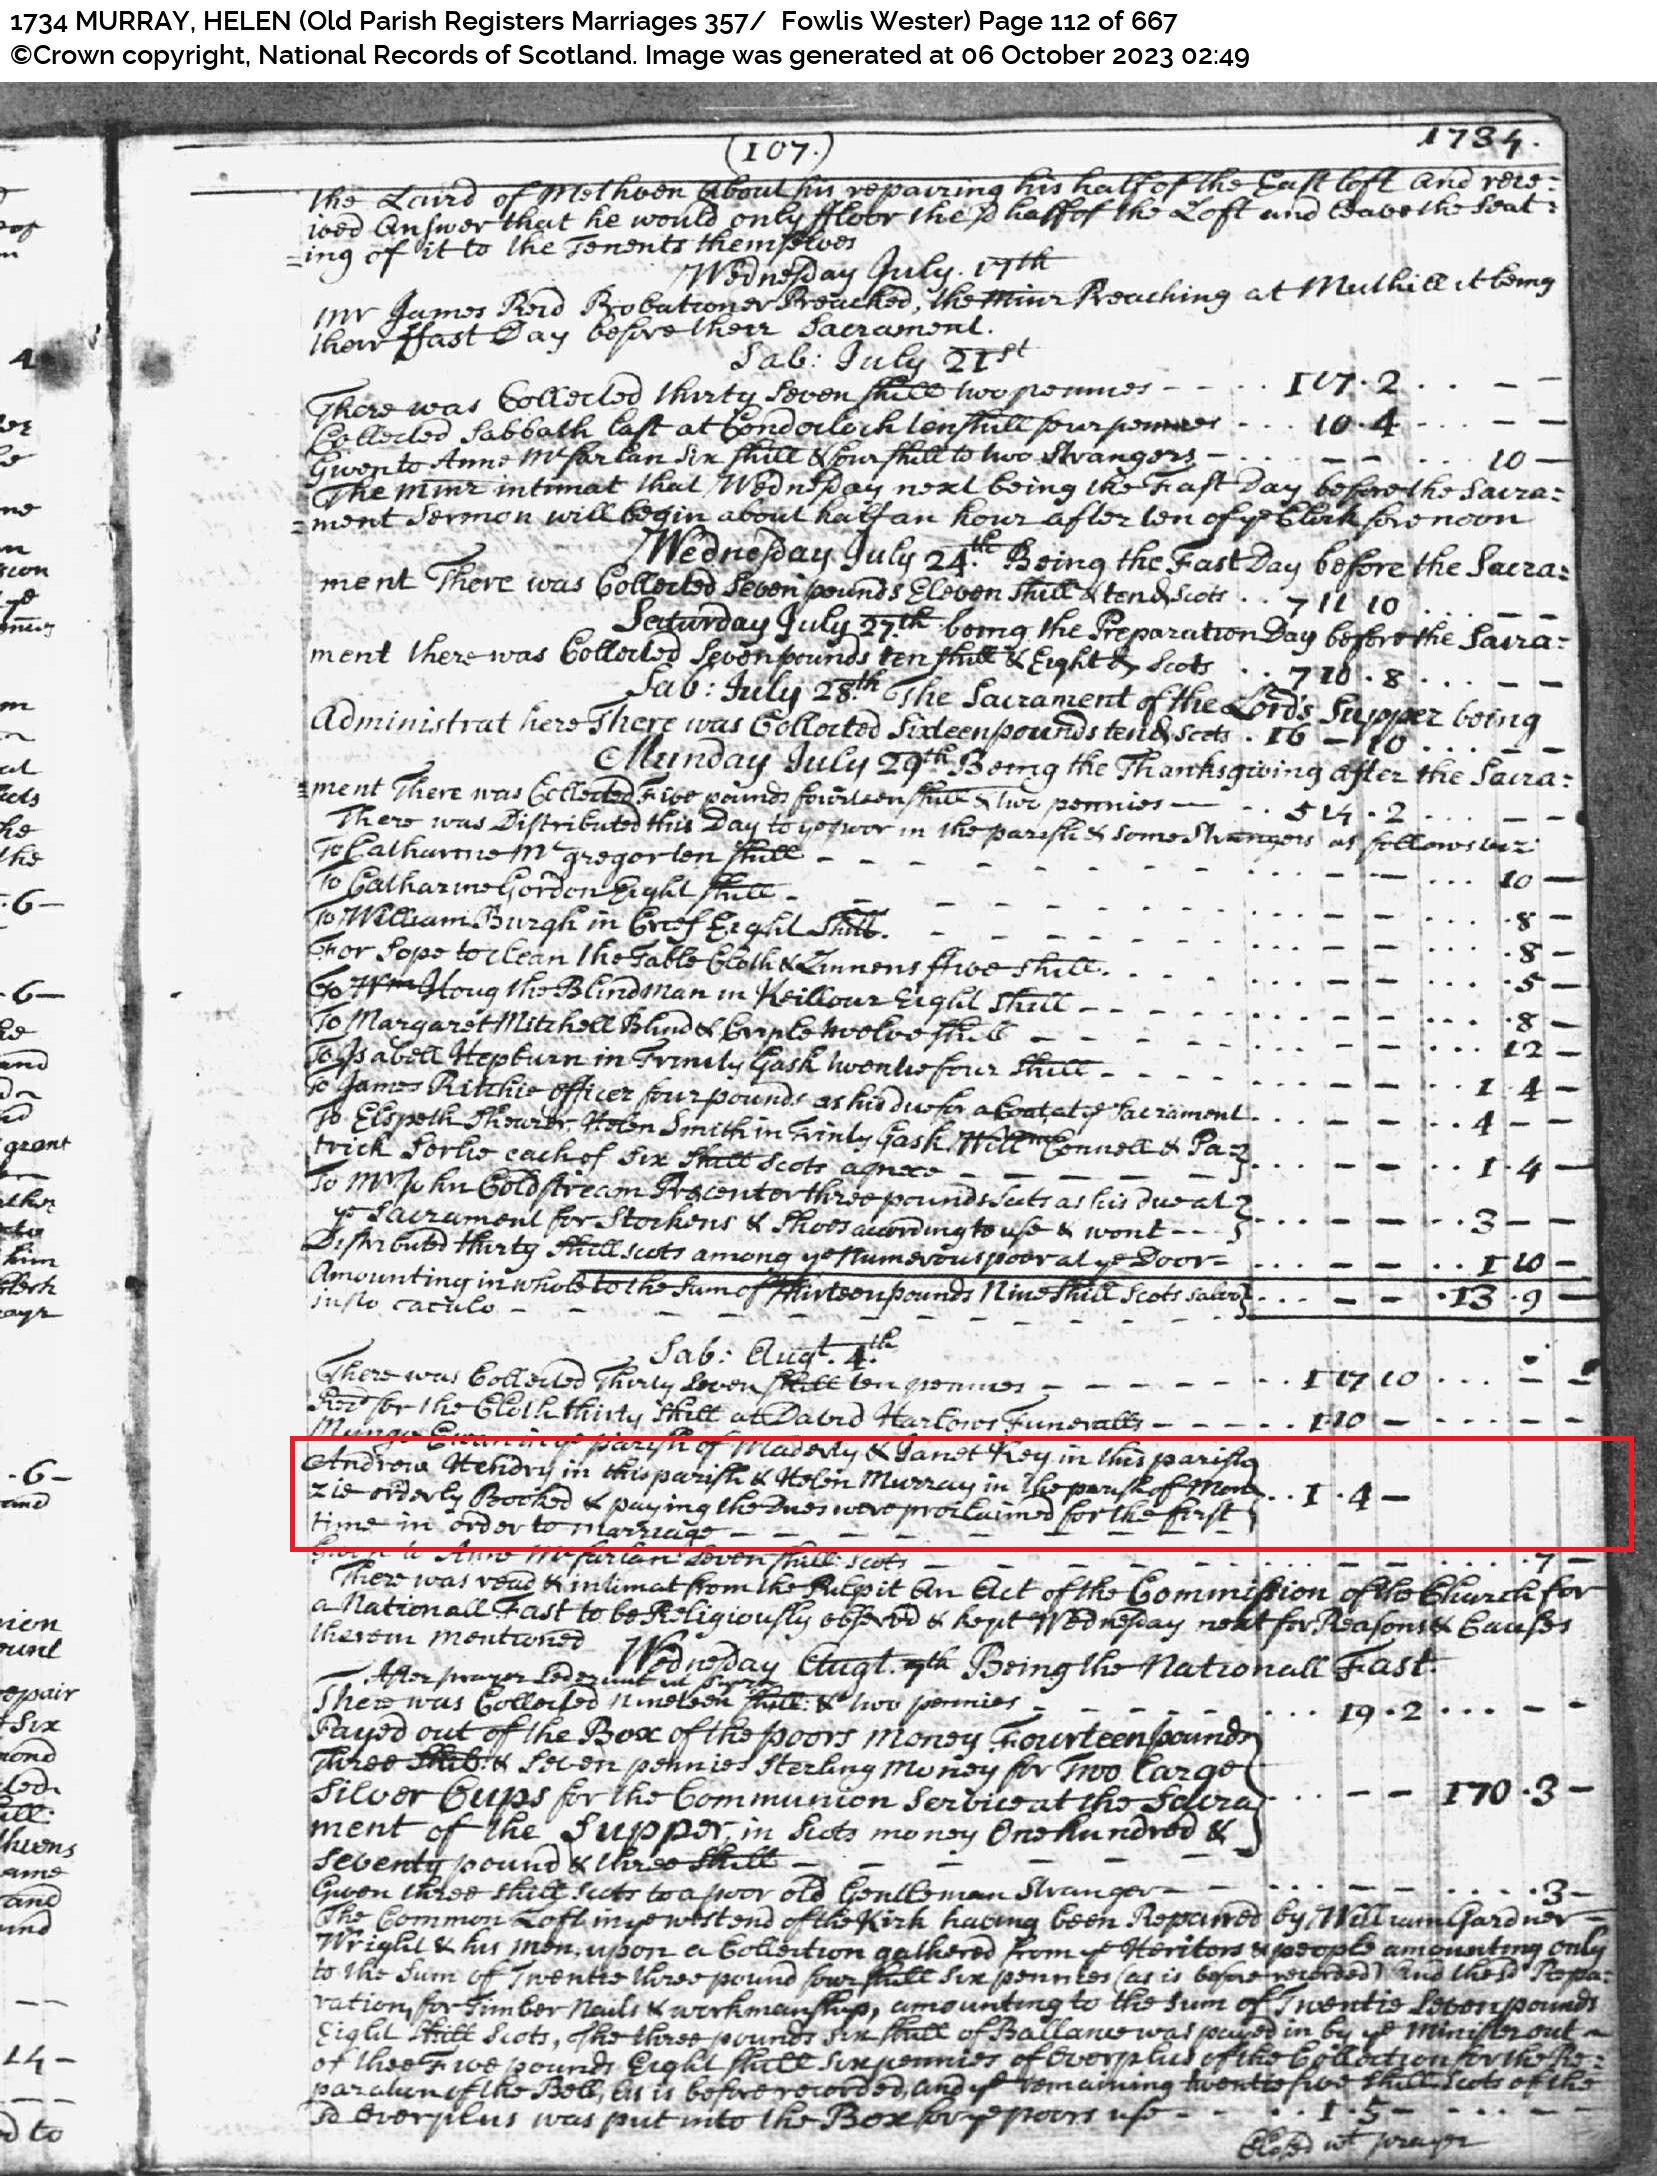 1734 MURRAY, HELEN (Old Parish Registers Marriages 357/ Fowlis Wester) Page 112 of 667
©Crown copyright, National Records of Scotland. Image was generated at 06 October 2023 02:49
(107.) 1734.
the Laird of Methven about his repairing his half of the East loft and rece=
ived Answer that he would only ffloor the sd half of the Loft and leave the Seat=
=ing of it to the Tenents themselves
Wednesday July. 17th
Mr James Reid Probationer Preached, the Minr Preaching at Muthill it being
their ffast Day before their Sacrament.
Sab: July 21st
There was Collected thirty Seven shill two pennies - - . . 1 17 . 2 . . - -
Collected Sabbath last at ten shill four pennies . . . 10 . 4 . . . - -
Given to Anne McFarlan Six shill & four shill to two Strangers - . . . - - . . . 10 -
The Minr intimat that Wednesday next being the Fast Day before the Sacra=
=ment Sermon will begin about half an hour after ten of ye Clock forenoon
Wednesday July 24.th Being the Fast Day before the Sacra=
ment There was Collected Seven pounds Eleven Shill & ten d Scots . . 7 11 10 . . . - -
Saturday July 27.th being the Preparation Day before the Sacra=
ment there was Collected Seven pounds ten shill & Eight d Scots . . 7 10 . 8 . . . - -
Sab: July 28.th The Sacrament of the Lord's Supper being
Administrat here There was Collected Sixteen pounds ten d Scots . 16 - 10 . . . - -
Munday July 29th Being the Thanksgiving after the Sacra=
=ment There was Collected Five pounds fourteen shill & two pennies - . . 5 14 . 2 . . . - -
There was Distributed this Day to ye poor in the parish & some Strangers as follows viz
To Catharine McGregor ten shill - - - - 10 -
To Catharine Gordon Eight shill - - - - . 8 -
To William Burgh in Crief Eight Shill. - - - . 8 -
For Sope to clean the Table Cloth & Linnens ffive shill. . . . 5 -
To Wm Houg the Blind Man in Keillour Eight Shill - - - . 8 -
To Margaret Mitchell Blind & Criple twelve shill - - - 12 -
To Isabell Hepburn in Trinity Gask twentie four Shill - - - 1 . 4 -
To James Ritchie officer four pounds as his due for a Coat at ye Sacrament . . . - - . . 4 - -
To Elspeth Helen Smith in Trinty Gask, Will Connell & Pa=
trick Sorlie each of Six Shill Scots apiece - - - . . 1 . 4 -
To Mr John Coldstream Precenter three pounds Scots as his due at
ye Sacrament for Stockens & Shoes according to use & wont - - - . . . - - . . 3 - -
Distributed thirty Shill scots among ye Numerous poor at ye Door - . . . - - . . 1 10 -
Amounting in whole to the Sum of thirteen pounds Nine Shill Scots salvo . . . - - . 13 . 9 -
justo caculo - - - -
Sab: Augt. 4.th
There was Collected Thirty Seven shill ten pennies - - - - . . 1 17 10 . . . - -
Recd for the Cloth thirty shill at David Harlows Funeralls - - - - . . 1 10 -
Mungo in ye parish of Maderty & Janet Key in this parish
Andrew Hendry in this parish & Helen Murray in the parish of Mon
zie orderly Booked & paying the Dues were proclaimed for the first . . 1 . 4 -
time in order to marriage - - - -
Given to Anne McFarlan Seven shill: Scots - - - . . . . 7 -
There was read & intimat from the Pulpit An Act of the Commission of the Church for
a Nationall Fast to be Religiously observed & kept Wednesday next for Reasons & Causes
therein mentioned
Wednesday Augt. 7th Being the Nationall Fast.
After prayer
There was Collected nineteen shill: & two pennies - - - . . . 19 . 2 . . . - -
Payed out of the Box of the poors money Fourteen pounds
Three Shill: & Seven pennies Sterling Money for Two Large
Silver Cups for the Communion Service at the Sacra . . . - - 170 . 3 -
ment of the Supper, in Scots money One hundred &
seventy pound & three shill - - - -
Given three shill Scots to a poor old Gentleman Stranger - - . . . . 3 -
The Common Loft in ye west end of the Kirk having been Repaired by William Gardner -
Wright & his Men, upon a Collection gathered from ye Heritors & people amounting only
to the Sum of Twentie three pound four shill six pennies (as is before recorded) And the sd Repa=
ration, for Timber Nails & workmanship, amounting to the Sum of Twentie Seven pounds
Eight Shill Scots, The three pounds six shill of Ballance was payed in by ye Minister out -
of thee Five pounds Eight shill six pennies of Overplus of the Collection for the Re=
paration of the Bell, as is before recorded, and ye remaining twentie five shill Scots of the
sd Overplus was put into the Box for ye poors use - - . . 1 . 5 - . . . - -
Closed wt prayer